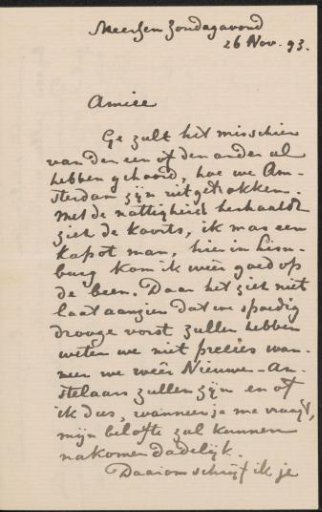 Meerssen Zondagavond
26 Nov. 93.
Amice
Ge zult het misschien
van den een of den ander al
hebben gehoord, hoe we Am-
sterdam zijn uitgetrokken.
Met de nattigheid herhaalde
zich de koorts, ik was een
kapot man, hier in Lim-
burg kom ik weêr goed op
de been. Daar het zich niet
laat aanzien dat we spoedig
drooge vorst zullen hebben
weten we niet precies wan-
neer we weêr Nieuwer-Am-
stelaars zullen zijn en of
ik dus, wanneer je me vraagt,
mijn belofte zal kunnen
nakomen dadelijk.
Daarom schrijf ik je